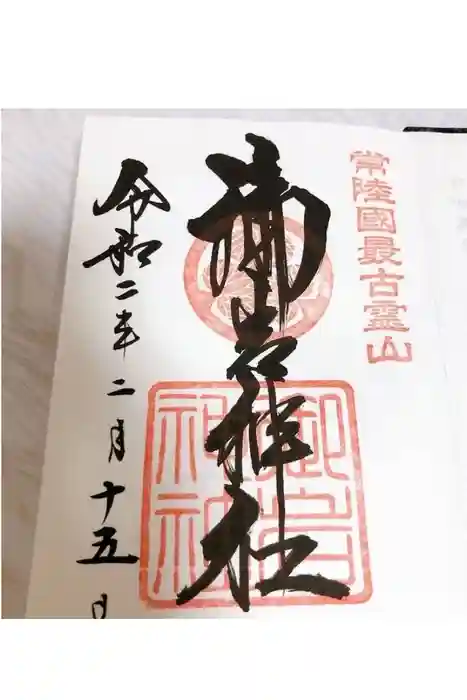 常陸國最古霊山
御岩神社
御岩神社
令和二年二月十五日